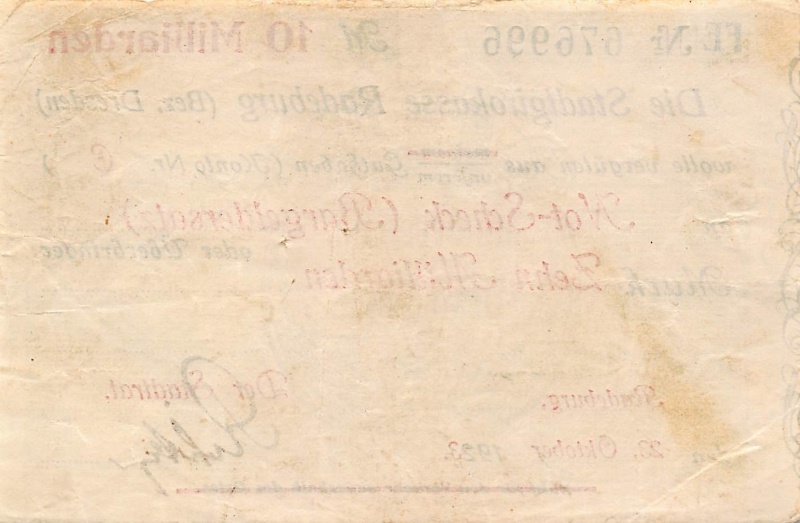 FE Nr 676996 M 10 Milliarden
Die Stadtgirokasse Radeburg (Bez. Dresden)
wolle vergüten aus unserem Guthaben (Konto Nr. C )
Not-Scheck (Bargeldersatz)
oder Überbringer
Mark Zehn Milliarden
Radeburg, Der Stadtrat.
den 23. Oktober 1923.